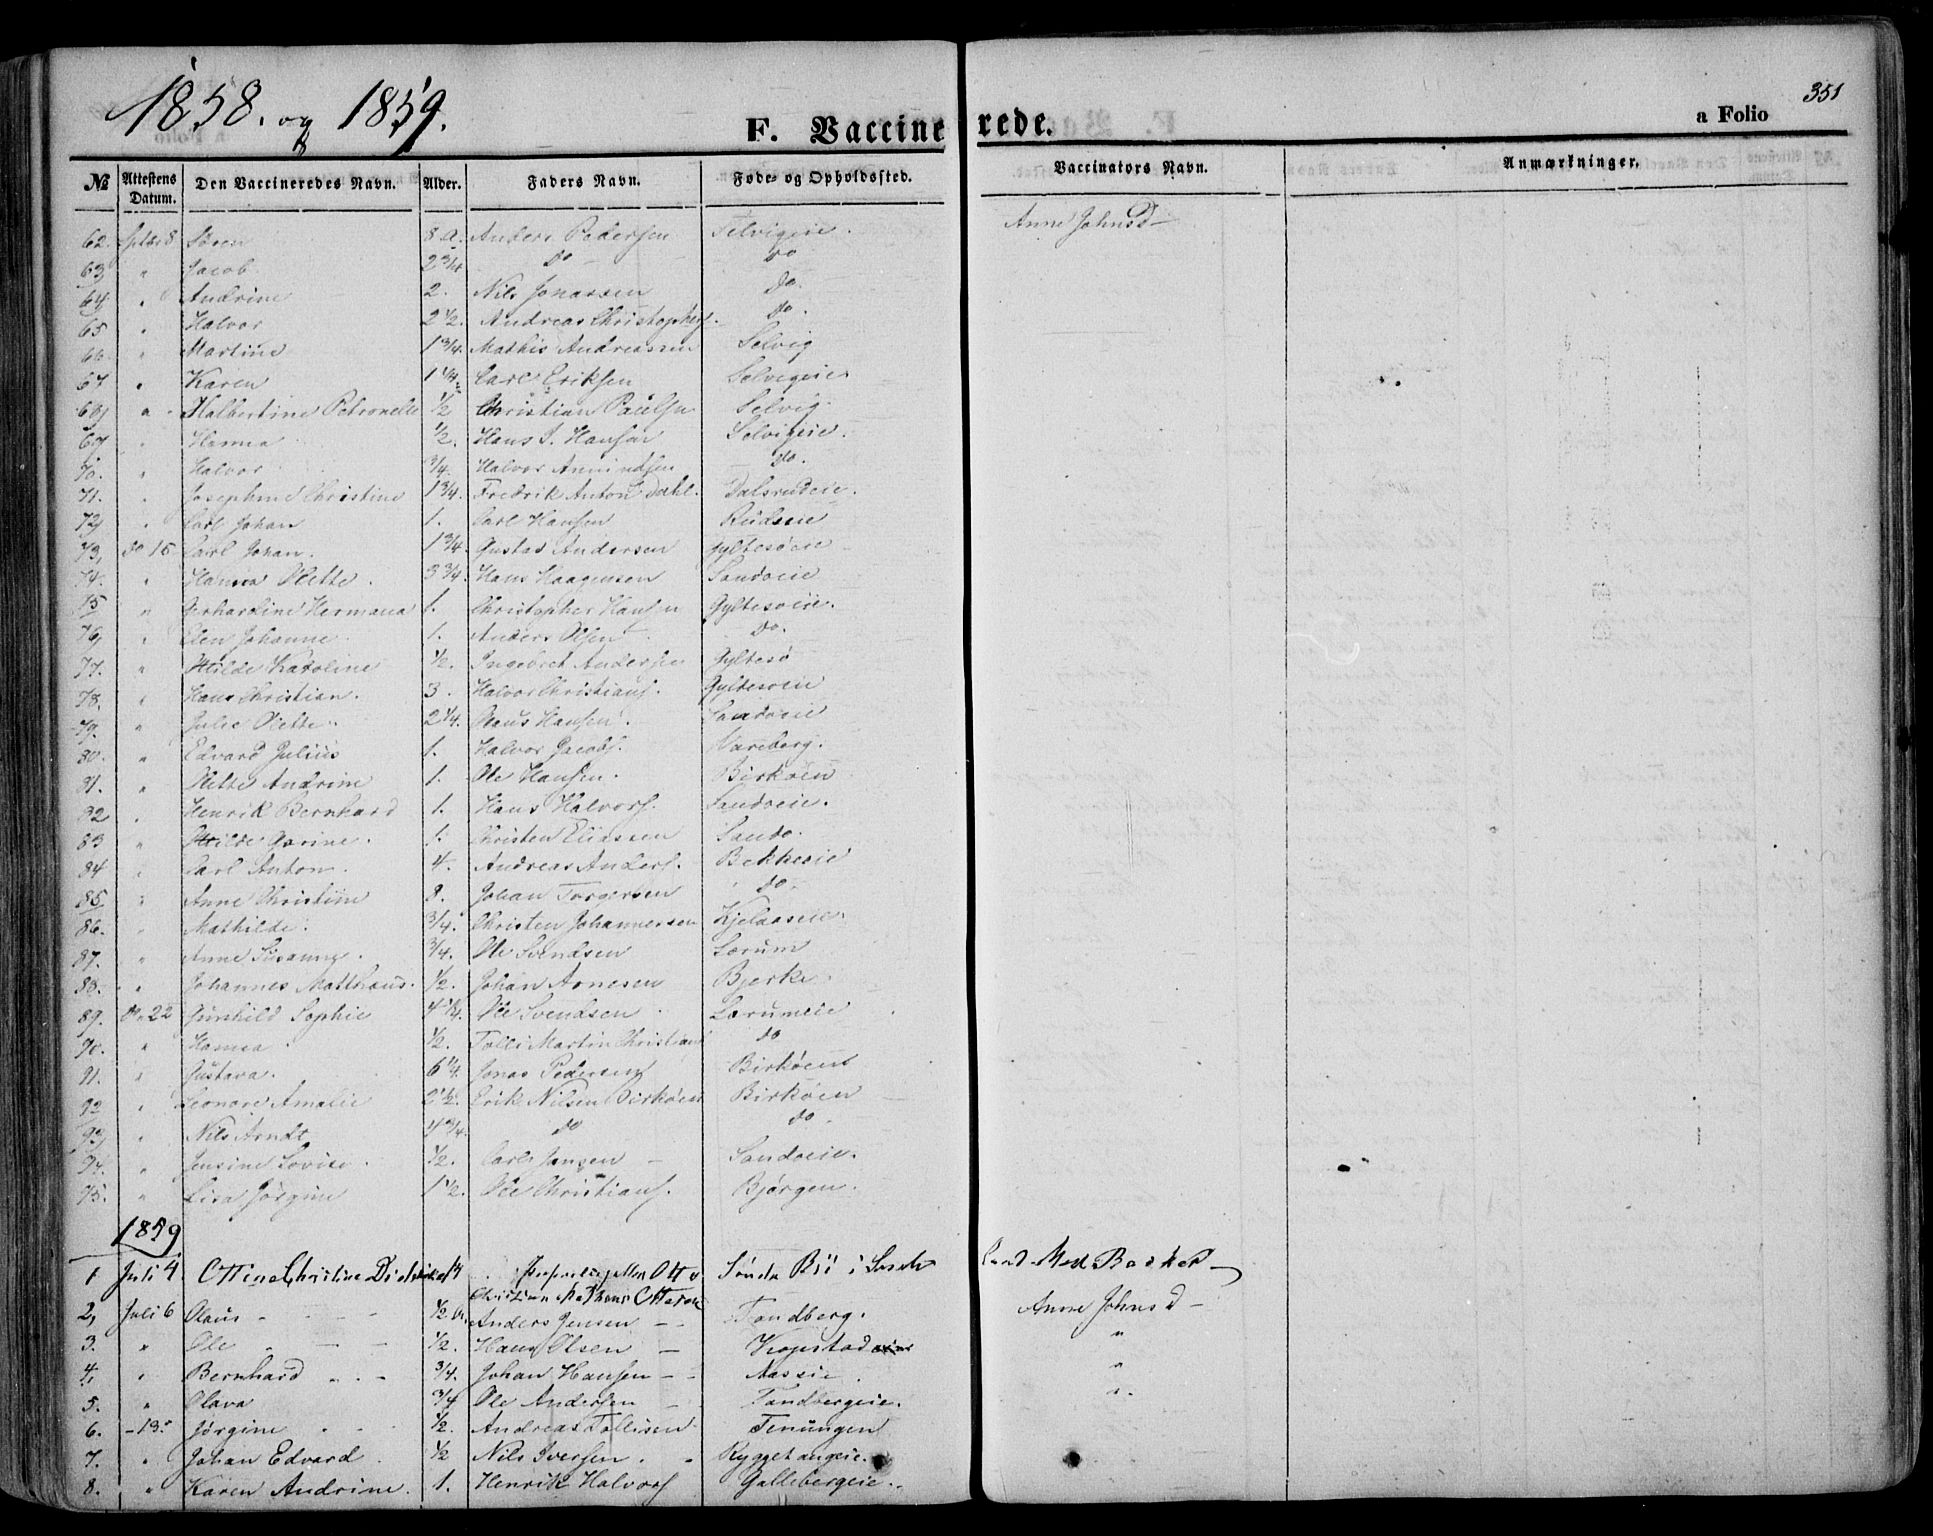 1858. og 1859.
F. Vaccinerede.
a Folio 351
№ Attestens Datum. Den Vaccineredes Navn. Alder. Faders Navn. Føde- og Opholdssted. Vaccinators Navn. Anmærkninger.
62. Septbr 8 Søren 8 a. Anders Pedersen Selvigeie. Anne Johnsd
63 " Jacob 2 3/4 do do
64 " Andrine 2. Nils Jonassen do.
65 " Halvor 2 1/2. Andreas Christophers. do.
66. " Martine 1 3/4. Mathis Andreassen Selvig
67. " Karen 1 1/4. Carl Eriksen Selvigeie.
68, " Halbertine Petronelle 1/2 Christian Paulsn Selvig
69 " Hanna 1/2. Hans J. Hansen Selvigeie.
70. " Halvor 3/4. Halvor Amundsen do.
71. " Josephine Christine 1 3/4. Fredrik Anton Dahl. Dalsrudeie.
72, " Carl Johan 1. Carl Hansen Rudseie
73, do 15 Carl Johan. 1 3/4. Gustav Andersen Gyltesøeie
74. " Hanna Olette. 3 3/4. Hans Haagensen Sandøeie
75 " Gerhardine Hermana 1. Christopher Hansen Gyltesøeie.
76, " Elen Johanne 1. Anders Olsen do.
77. " Otilde Karoline 1/2. Ingebret Andersen Gyltesø
78. " Hans Christian. 3. Halvor Christians. Gyltesøeie
79. " Julie Olette. 2 1/4. Claus Hansen. Sandøeie
80. " Edvard Julius 1. Halvor Jacobs. Vareberg.
81. " Olette Andrine 1. Ole Hansen. Birkøen
82 " Henrik Bernhard 1. Hans Halvors. Sandøeie.
83 " Otilde Gorine. 1. Christen Eliassen Sandø.
84 " Carl Anton. 4. Andreas Anders. Bekkeeie
85 " Anne Christine 8. Johan Torgersen do
86. " Mathilde. 3/4. Christen Johannessen Kjelaaseie
87. " Anne Susanne. 3/4. Ole Svendsen Lørum
88. " Johannes Matthæus. 1/2. Johan Arnesen Bjerke
89. do 22 Gunhild Sophie 4 1/4. Ole Svendsen Lørumeie
90. " Hanna 1/2. Tolli Martin Christians do
91. " Gustava. 6 1/4. Jonas Pedersen Birkøen
92 " Leonore Amalie 2 1/2. Erik Nilsen Birkøen Birkøen
93, " Nils Arndt 4 3/4. do do
94. " Jensine Lovise. 1/2. Carl Jensen Sandøeie.
95. " Lisa Jørgine 1 1/2. Ole Christians. Bjørgen.
1859
1 Juli 4 Ottine Christine 14 Otto Søndre Bø i Sande Cand Med Backer
Christian Mathias Ottesen
2, Juli 6 Olaus 1/2 a. Anders Jensen Tandberg. Anne Johnsd
3. " Ole 1/2. Hans Olsen Kopstad "
4, " Bernhard 3/4. Johan Hansen Aaseie. "
5. " Olava 3/4 Ole Andersen Tandbergeie. "
6. - 13. Jørgine 1/2. Andreas Tollisen Tenungen
7. " Johan Edvard 1/2 Nils Iversen Ryggetangeie.
8. " Karen Andrine. 1. Henrik Halvors Gallebergeie.